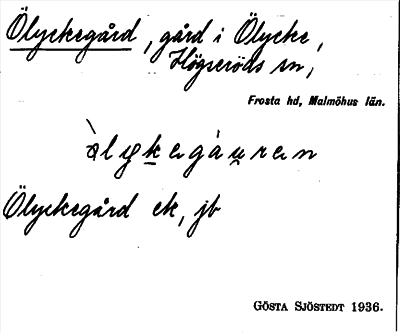 Ölyckegård, gård i Ölycke,
Högseröds sn,
Frosta hd, Malmöhus län.
Ölyckegård ek, jb
GÖSTA SJÖSTEDT 1936.